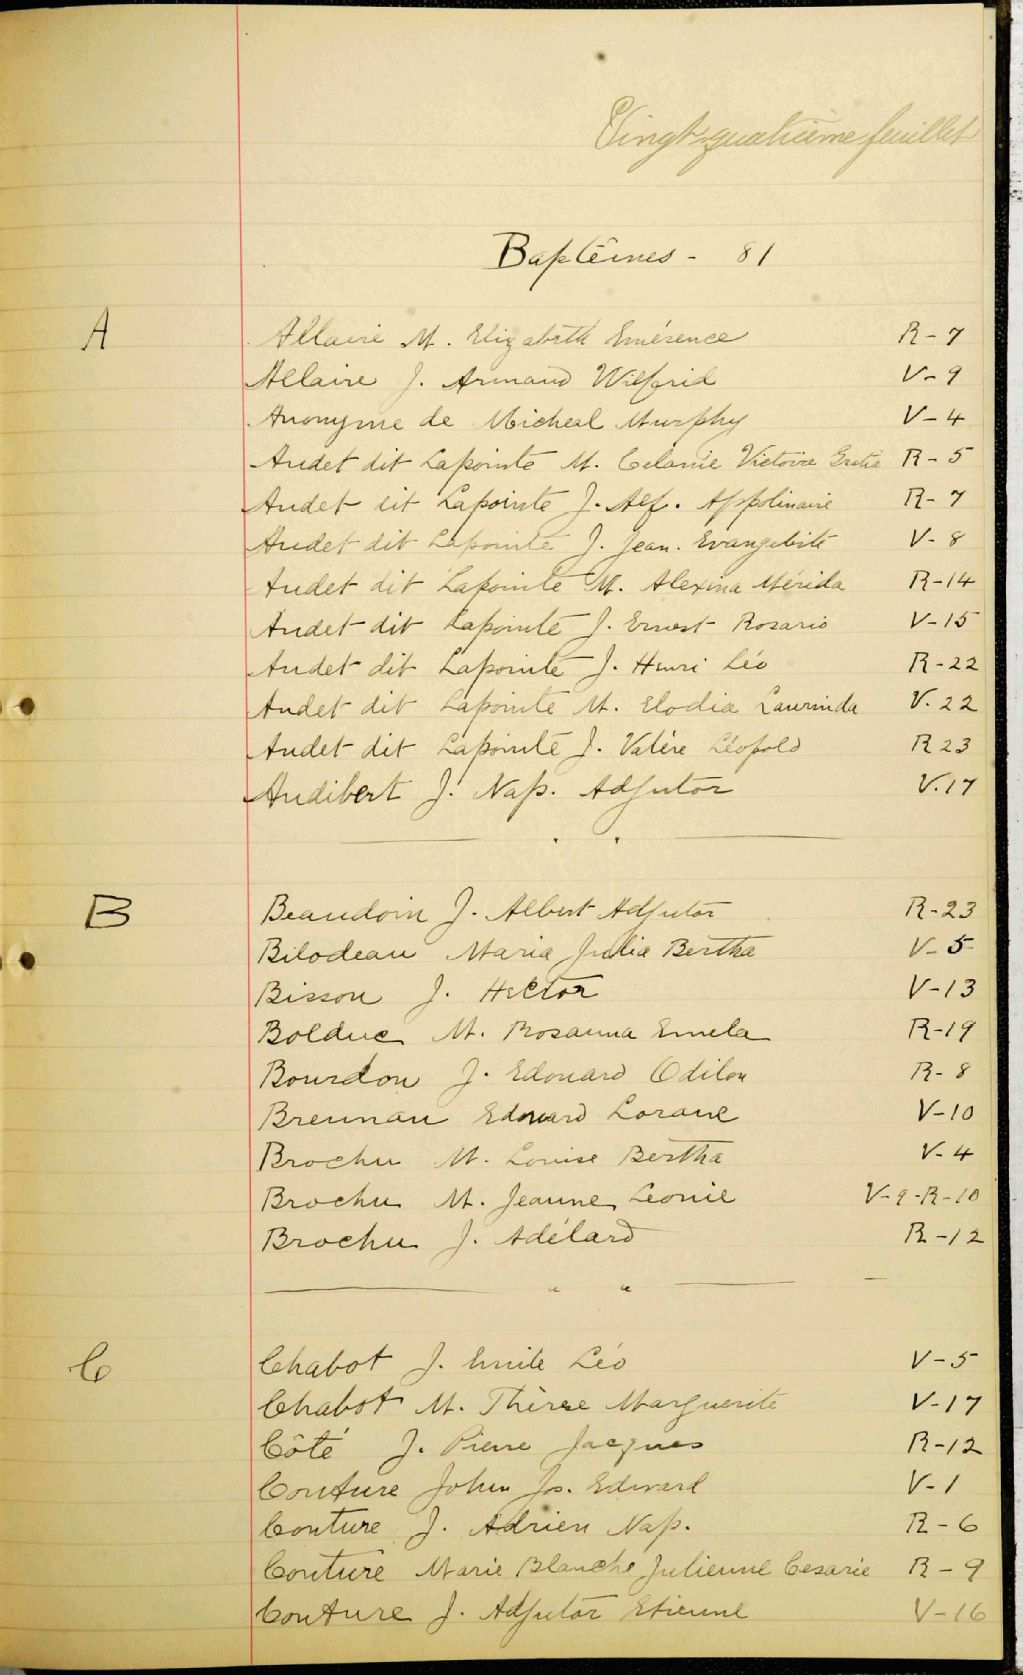 Vingt-quatrième feuillet
Baptêmes - 81
A
Allaire M. Elizabeth Emérence R-7
Allaire J. Armand Wilfrid V-9
Anonyme de Micheal Murphy V-4
Audet dit Lapointe M. Celanie Victoire R-5
Audet dit Lapointe J. Alf. Appolinaire R-7
Audet dit Lapointe J. Jean. Evangeliste V-8
Audet dit Lapointe M. Alexina Mérida R-14
Audet dit Lapointe J. Ernest Rosario V-15
Audet dit Lapointe J. Henri Léo R-22
Audet dit Lapointe M. Elodia Laurinda V.22
Audet dit Lapointe J. Valère Léopold R 23
Audibert J. Nap. Adjutor V.17
B
Beaudoin J. Albert Adjutor R-23
Bilodeau Maria Julia Bertha V-5
Bisson J. Hector V-13
Bolduc M. Rosanna Emela R-19
Bourdon J. Edouard Odilon R-8
Brennan Edouard V-10
Brochu M. Louise Bertha V-4
Brochu M. Jeanne Leonie V-9-R-10
Brochu J. Adélard R-12
C
Chabot J. Emile Léo V-5
Chabot M. Thérèse Marguerite V-17
Côté J. Pierre Jacques R-12
Couture John Jos. Edward V-1
Couture J. Adrien Nap. R-6
Couture Marie Blanche Julienne Cesarie R-9
Couture J. Adjutor Etienne V-16